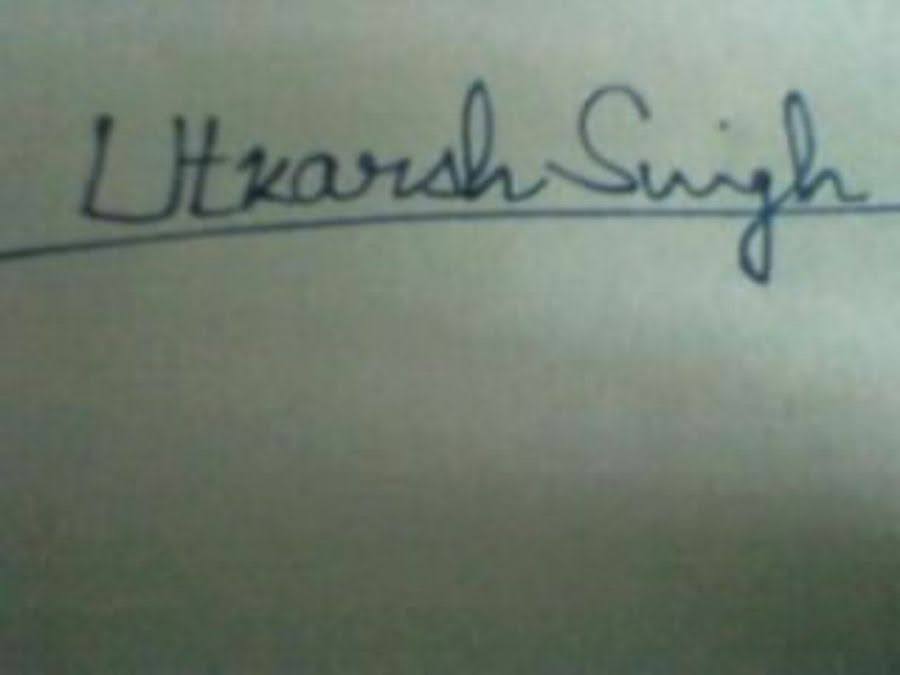 Utkarsh Singh